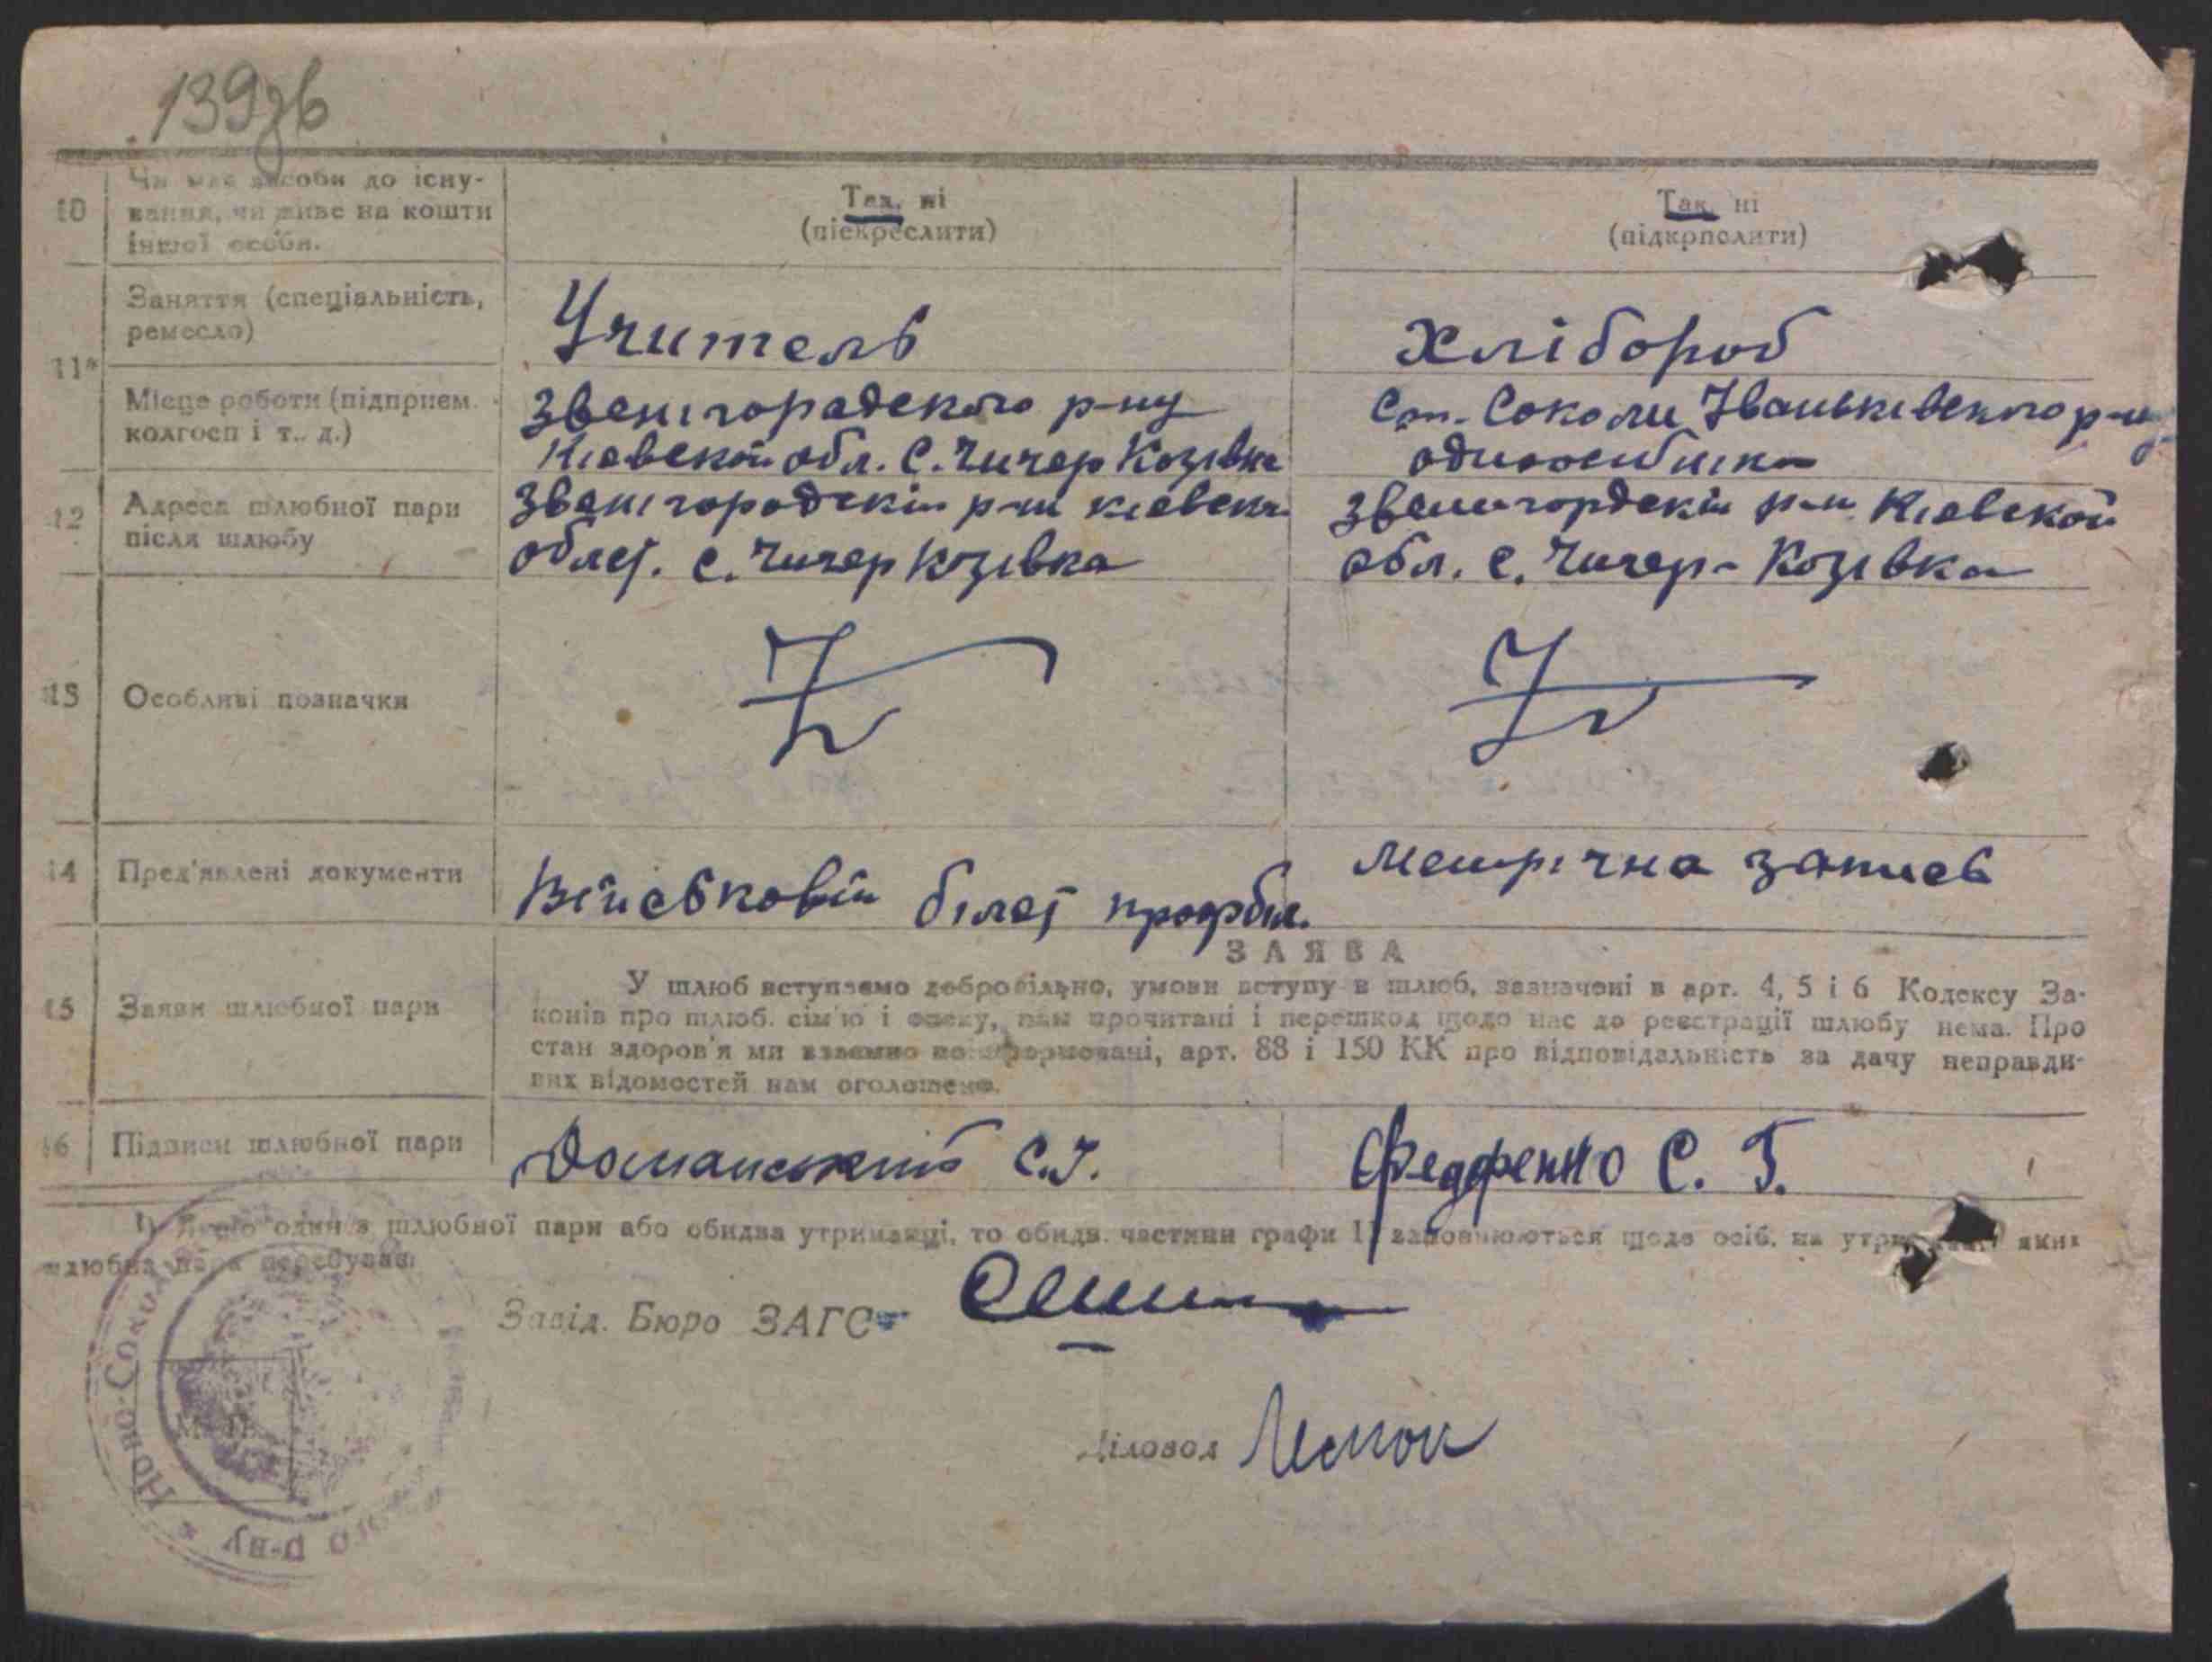 139зв
10
Чи має засоби до існу-
вання, чи живе на кошти
іншої особи.
Так, ні
(піскреслити)
Так, ні
(підкрполити)
11*
Заняття (спеціальність,
ремесло)
Учитель
Хлібороб
Місце роботи (підприєм.
колгосп і т. д.)
Звенігорадского р-ну
Кіевской обл. С. Чичер Козівка
Соколи Іваньківського р-ну
одноосібніка
12
Адреса шлюбної пари
після шлюбу
Звенігородскій р-н кіевска
облст. с. Чичер Козівка
Звенигордскій р-н Кіевской
обл. с. Чичер-Козівка
13
Особливі позначки
14
Пред'явлені документи
Військовій білет профбіл.
Метрічна запись
ЗАЯВА
15
Заяви шлюбної пари
У шлюб вступаємо добровільно, умови вступу в шлюб, зазначені в арт. 4, 5 і 6 Кодексу За-
конів про шлюб. сім'ю і опеку, нам прочитані і перешкод щодо нас до реєстрації шлюбу нема. Про
стан здоров'я ми взаємно поінформовані, арт. 88 і 150 КК про відповідальність за дачу неправди-
вих відомостей нам оголошено.
16
Підписи шлюбної пари
Доманський С.І.
Федоренко С. Г.
1) Якщо один з шлюбної пари або обидва утриманці, то обидв. частини графи 11 заповнюються щодо осіб, на утриманні яких
шлюбна пара перебуває
Завід. Бюро ЗАГС
Діловод
М. П.
Ново-Сокол
р-ну